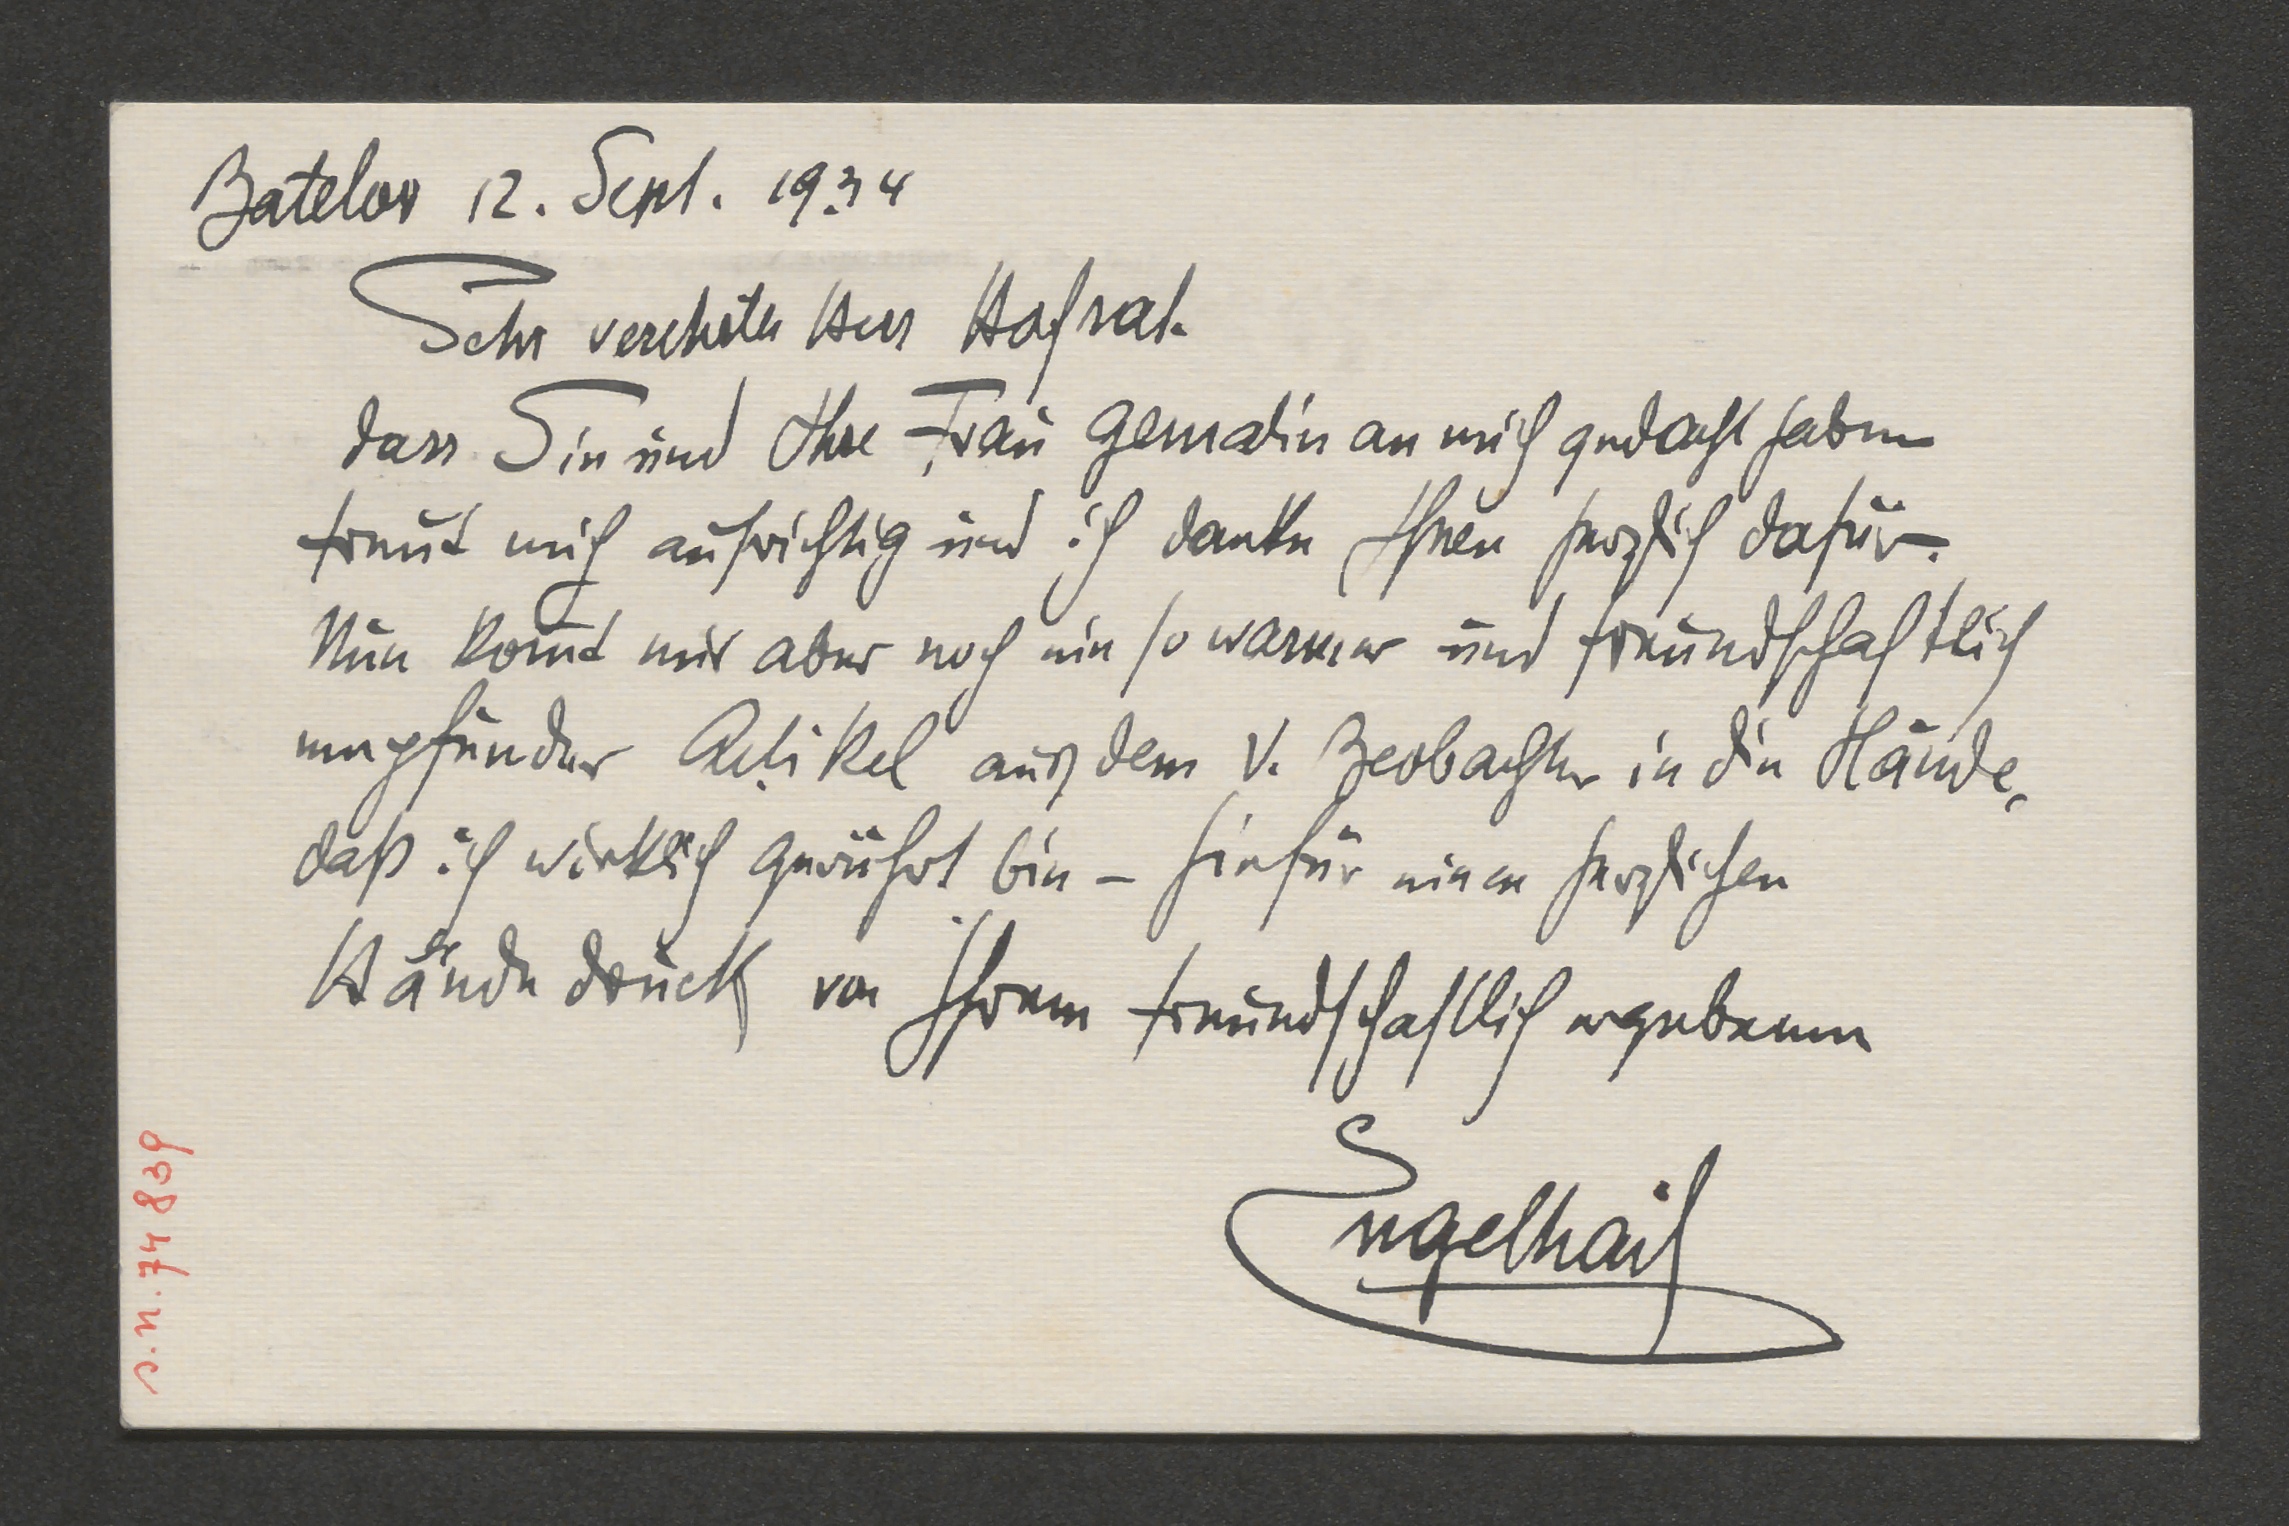 Batelov 12. Sept. 1934
Sehr verehrter Herr Hofrat.
dass Sie und Ihre Frau Gemalin an mich gedacht haben
freut mich aufrichtig und ich danke Ihnen herzlich dafür.
Nun komt mir aber noch ein so warmer und freundschaftlich
empfundner Artikel aus dem V. Beobachter in die Hände,
daß ich wirklich gerührt bin – hiefür einen herzlichen
Händedruck von Ihrem freundschaftlich ergebenen
Engelhart
c.n. 74839